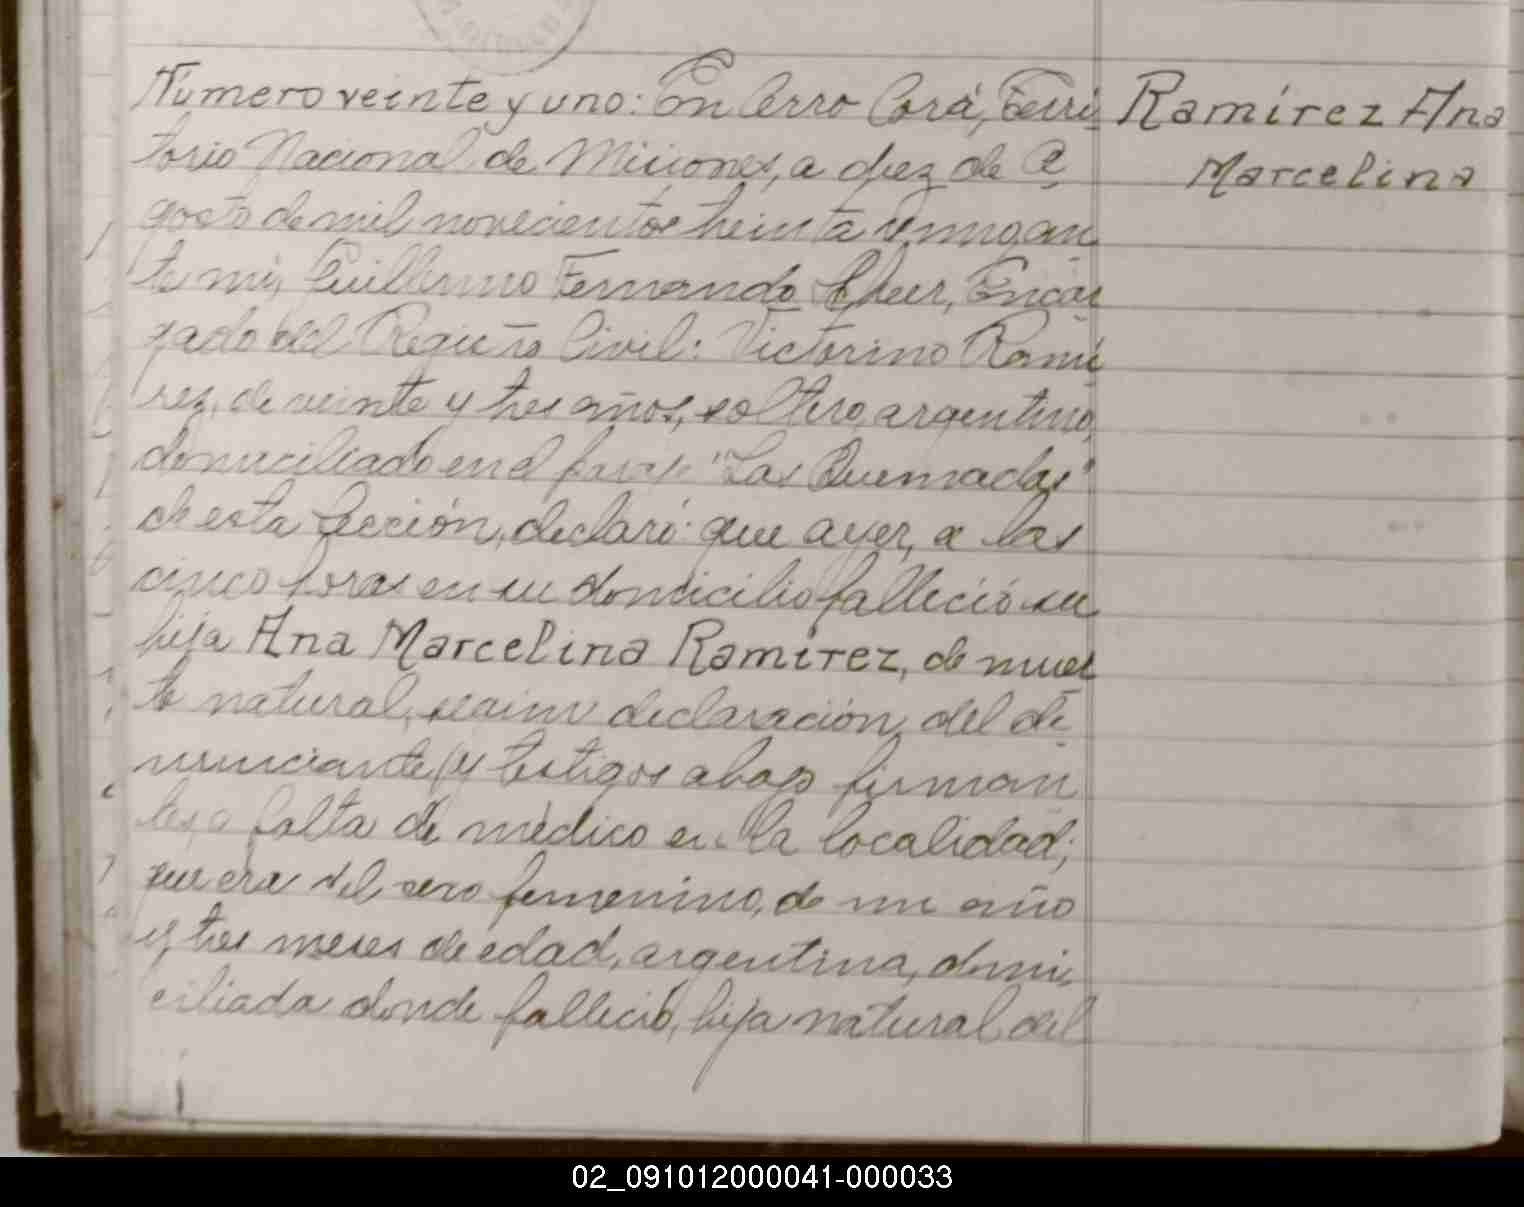 Número veinte y uno: En Cerro Corá, Terri
Ramírez Ana
torio Nacional de Misiones, a diez de A
Marcelina
gosto de mil novecientos treinta y uno, an
te mí, Guillermo Fernando, Encar
gado del Registro Civil: Victorino Ramí
rez, de veinte y tres años, soltero, argentino,
domiciliado en el paraje "Las Quemadas"
de esta Sección, declaró: que ayer, a las
cinco horas en su domicilio falleció su
hija Ana Marcelina Ramírez, de muer
te natural, según declaración del de
nunciante y testigos abajo firman
tes a falta de médico en la localidad;
que era del sexo femenino, de un año
y tres meses de edad, argentina, domi
ciliada donde falleció, hija natural del
02_091012000041-000033